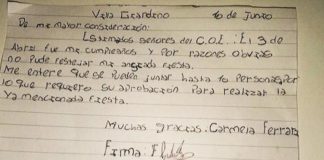 Villa Giardino 10 de Junio
De mi mayor consideración:
Estimados señores del C.O.E.: El 3 de
Abril fue mi cumpleaños y por razones obvias
no pude festejar mi ansiada fiesta.
Me entere que se pueden juntar hasta 10 personas, Por
lo que requiero su aprobación para realizar la
ya mencionada fiesta.
Muchas gracias. Carmela Ferrara
Firma: